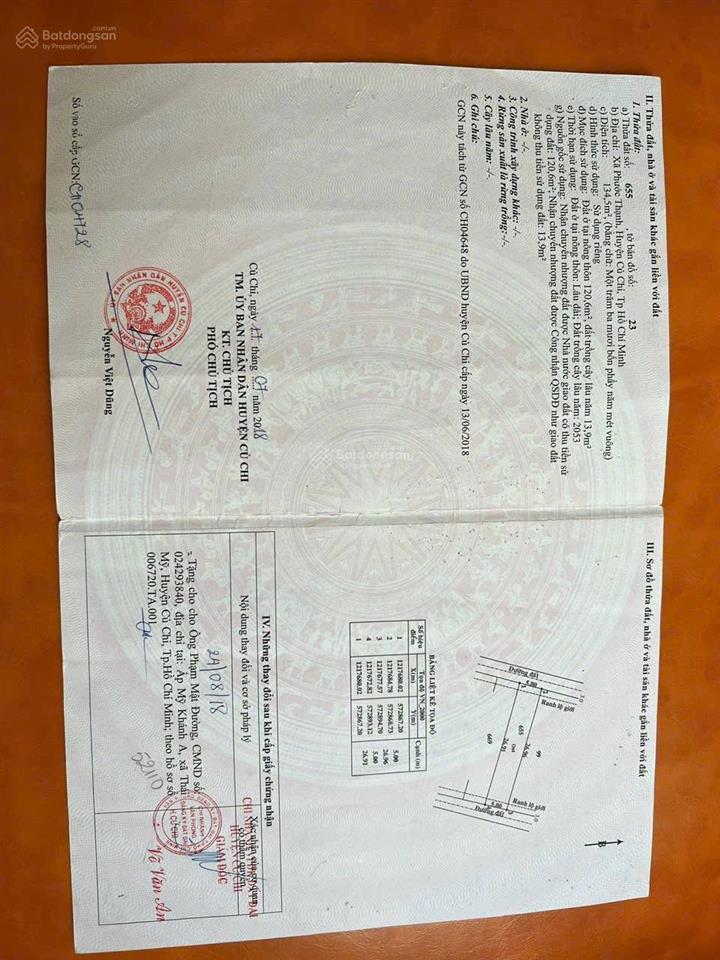 Batdongsan.com.vn
by PropertyGuru
II. Thửa đất, nhà ở và tài sản khác gắn liền với đất
1. Thửa đất:
a) Thửa đất số: 655 , tờ bản đồ số: 23
b) Địa chỉ: Xã Phước Thạnh, Huyện Củ Chi, Tp Hồ Chí Minh
c) Diện tích: 134,5m², (bằng chữ: Một trăm ba mươi bốn phẩy năm mét vuông)
d) Hình thức sử dụng: Sử dụng riêng
đ) Mục đích sử dụng: Đất ở tại nông thôn 120,6m², đất trồng cây lâu năm 13,9m²
e) Thời hạn sử dụng: Đất ở tại nông thôn: Lâu dài; Đất trồng cây lâu năm: 2053
g) Nguồn gốc sử dụng: Nhận chuyển nhượng đất được Nhà nước giao đất có thu tiền sử
dụng đất: 120,6m²; Nhận chuyển nhượng đất được Công nhận QSDĐ như giao đất
không thu tiền sử dụng đất: 13,9m²
2. Nhà ở: -/-.
3. Công trình xây dựng khác: -/-.
4. Rừng sản xuất là rừng trồng: -/-.
5. Cây lâu năm: -/-.
6. Ghi chú:
GCN này tách từ GCN số CH04648 do UBND huyện Củ Chi cấp ngày 13/06/2018
Củ Chi, ngày tháng 07 năm 2018
TM. ỦY BAN NHÂN DÂN HUYỆN CỦ CHI
KT. CHỦ TỊCH
PHÓ CHỦ TỊCH
Nguyễn Việt Dũng
Số vào sổ cấp GCN: CH04728
III. Sơ đồ thửa đất, nhà ở và tài sản khác gắn liền với đất
B
Đường đất
Ranh lộ giới
5.00
99
26.96
655
Ont
26.91
669
Ranh lộ giới
5.00
Đường đất
BẢNG LIỆT KÊ TỌA ĐỘ
Số hiệu điểm Tọa độ VN_2000 Cạnh (m)
X(m) Y(m)
1 1217680.02 572867.20
5.00
2 1217684.78 572868.73
26.96
3 1217677.57 572894.70
5.00
4 1217672.82 572893.12
26.91
1 1217680.02 572867.20
IV. Những thay đổi sau khi cấp giấy chứng nhận
Nội dung thay đổi và cơ sở pháp lý
Xác nhận của cơ quan
có thẩm quyền
24/08/18
Tặng cho cho Ông Phạm Mặt Đường, CMND số:
024293840, địa chỉ tại: Ấp Mỹ Khánh A, xã Thái
Mỹ, Huyện Củ Chi, Tp.Hồ Chí Minh; theo hồ sơ số
006720.TA.001
52110
HUYỆN CỦ CHI
GIÁM ĐỐC
CHI NHÁNH
VĂN PHÒNG
ĐĂNG KÝ ĐẤT ĐAI
H.CỦ CHI
Võ Văn An
Batdongsan
by PropertyGuru